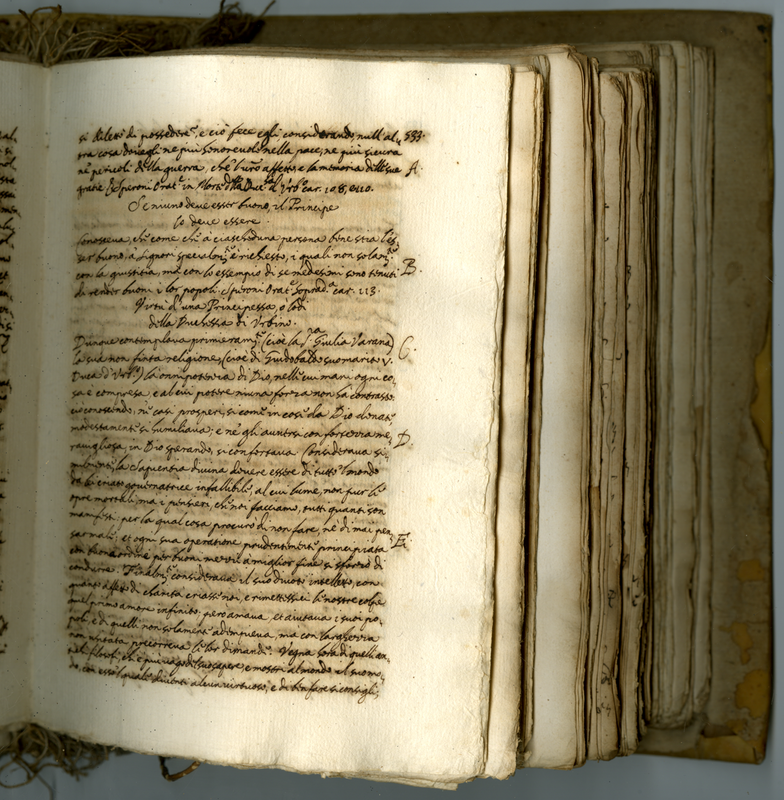 si diletò di possedere, e ciò fece egli considerando, null'al- 533.
tra cosa dovergli ne più honorevole nella pace, ne più sicura
ne' pericoli della guerra, che 'l vr̃o affetto, e la memoria delle sue A.
gratie. Speroni Orat.e in Morte della Duc.a d'Urb.o car. 108, e 110.
Se niuno deve esser buono, il Principe
lo deve essere.
Conosceva, che come che à ciascheduna persona bene stia l'es-
ser buono, à Signori specialm.te è richiesto, i quali non solam.te
con la giustitia, ma con lo essempio di se medesimi sono tenuti B.
di render buoni i lor popoli. Speroni Orat.e soprad.a car. 113.
Virtù d'una Principessa, o lodi
della Duchessa di Urbino.
Dunque contemplava primieram.te (cioè la S.ra Giulia Varana) C.
la sua non finta religione, (cioè di Guidobaldo suo marito V.
Duca d'Urb.o) la onnipotenza di Dio, nelle cui mani ogni co-
sa è compresa, e al cui potere niuna forza non hà contrasto:
ciò conoscendo, ne' casi prosperi, si come in cosa da Dio donate,
modestamente si humiliava; e ne gli aversi con fortezza me-
ravigliosa, in Dio sperando, si confortava. Considerava si- D.
milmente, la Sapientia divina dovere essere di tutto 'l mondo
da lei creato governatrice infallibile, al cui lume, non pur li
opre mortali, ma i pensieri, che noi facciamo, tutti quanti son
manifesti: per la qual cosa procurò di non fare, nè di mai pen-
sar male, et ogni sua operatione prudentemente principiata E.
con buono ordine per buoni mezzi à miglior fine si sforzò di
condurre. Finalm.te considerava il suo divoto intelletto, con
quanto affetto di charità creasse noi, e rimettesse le nostre colpe
quel primo amore infinito; però amava, et aiutava i suoi po-
poli, e di quelli non solamente adimpieva, ma con larghezza
non usitata precorreva li lor dimandi. Vegna hora di quelli an-
, che più vago di suo sapere, e mostri al mondo il suo mo-
do, con esso 'l quale diventi alcun virtuoso, e di ben fare si consigli,